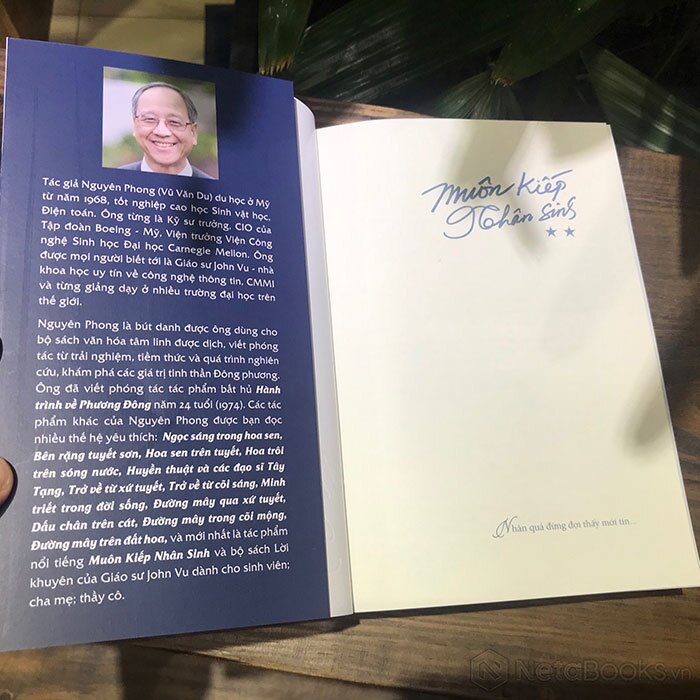 Tác giả Nguyên Phong (Vũ Văn Du) du học ở Mỹ
từ năm 1968, tốt nghiệp cao học Sinh vật học,
Điện toán. Ông từng là Kỹ sư trưởng, CIO của
Tập đoàn Boeing - Mỹ, Viện trưởng Viện Công
nghệ Sinh học Đại học Carnegie Mellon. Ông
được mọi người biết tới là Giáo sư John Vu - nhà
khoa học uy tín về công nghệ thông tin, CMMI
và từng giảng dạy ở nhiều trường đại học trên
thế giới.
Nguyên Phong là bút danh được ông dùng cho
bộ sách văn hóa tâm linh được dịch, viết phóng
tác từ trải nghiệm, tiềm thức và quá trình nghiên
cứu, khám phá các giá trị tinh thần Đông phương.
Ông đã viết phóng tác tác phẩm bất hủ Hành
trình về Phương Đông năm 24 tuổi (1974). Các tác
phẩm khác của Nguyên Phong được bạn đọc
nhiều thế hệ yêu thích: Ngọc sáng trong hoa sen,
Bên rặng tuyết sơn, Hoa sen trên tuyết, Hoa trôi
trên sóng nước, Huyền thuật và các đạo sĩ Tây
Tạng, Trở về từ xứ tuyết, Trở về từ cõi sáng, Minh
triết trong đời sống, Đường mây qua xứ tuyết,
Dấu chân trên cát, Đường mây trong cõi mộng,
Đường mây trên đất hoa, và mới nhất là tác phẩm
nổi tiếng Muôn Kiếp Nhân Sinh và bộ sách Lời
khuyên của Giáo sư John Vu dành cho sinh viên;
cha mẹ; thầy cô.
Muôn Kiếp
Nhân Sinh
Nhân quả đừng đợi thấy mới tin...
NetaBooks.vn